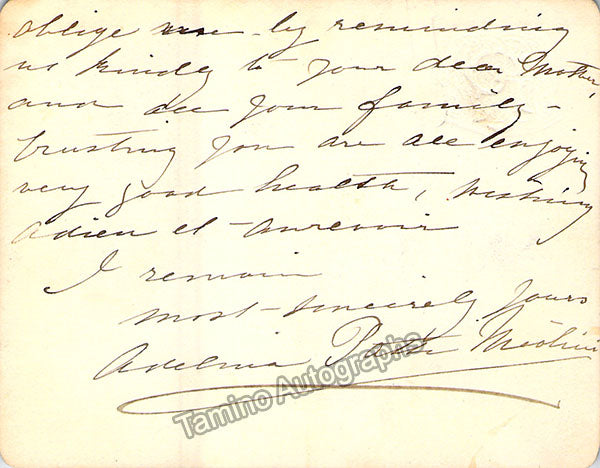 oblige me - by reminding
us kindly to your dear Mother,
and all your family -
trusting you are all enjoying
very good health, wishing
adieu et - aurevoir
I remain
most - sincerely yours
Adelina Patti Nicolini
Tamino Autographs